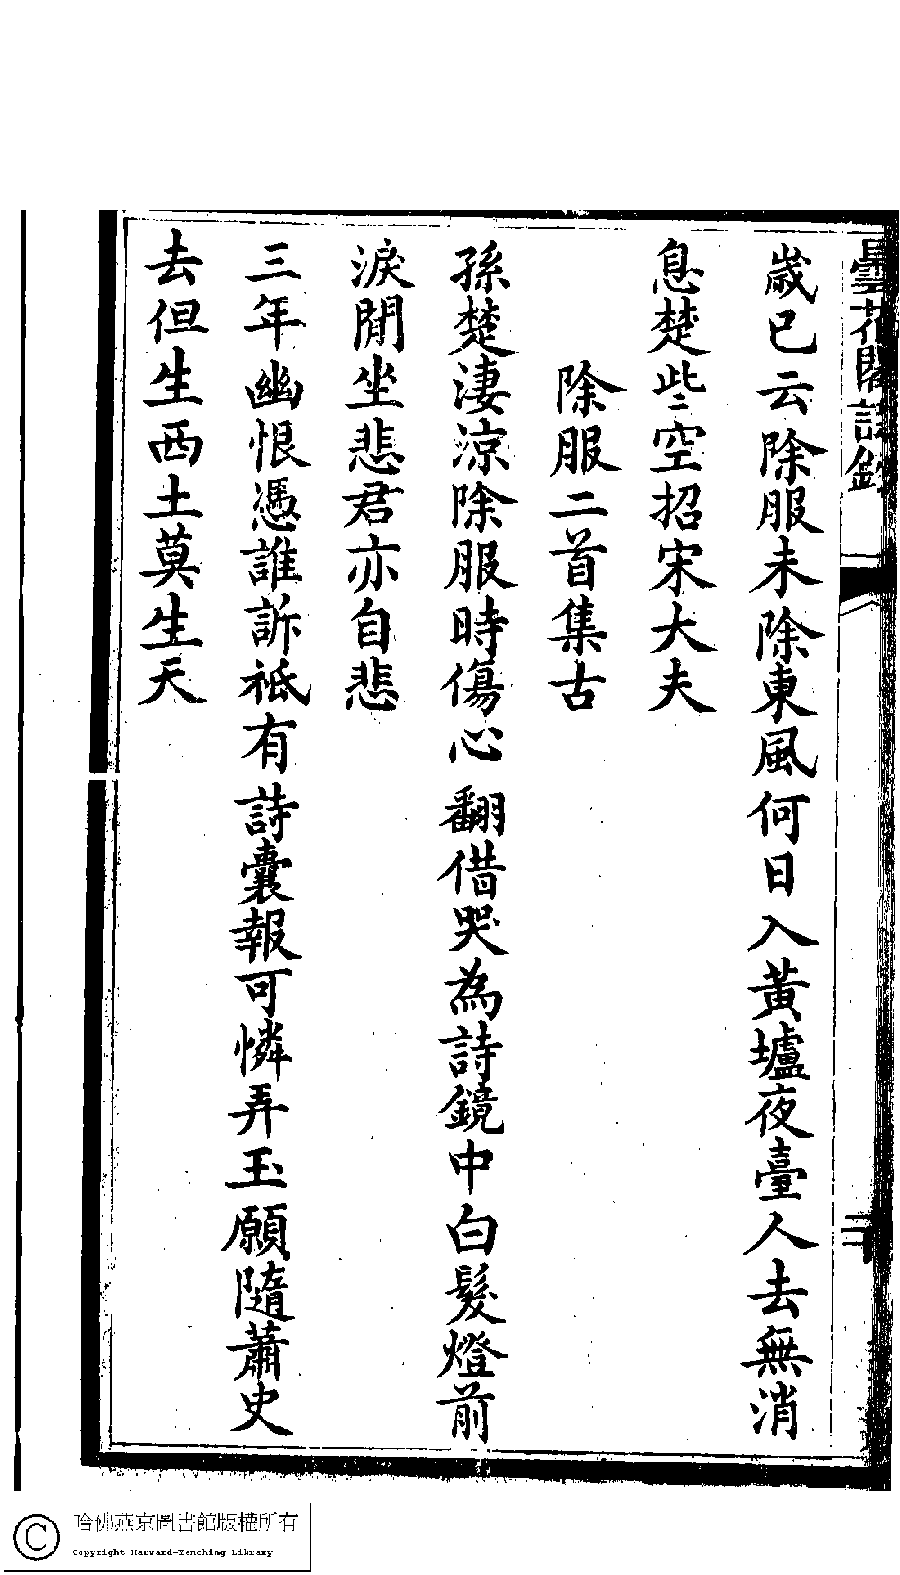 曇花閣詩鈔
二
歲已云除服未除東風何日入黃壚夜臺人去無消
息楚些空招宋大夫
除服二首集古
孫楚淒涼除服時傷心翻借哭為詩鏡中白髮燈前
淚閒坐悲君亦自悲
三年幽恨憑誰訴祗有詩囊報可憐弄玉願隨蕭史
去但生西土莫生天
哈佛燕京圖書館版權所有
Copyright Harvard-Yenching Library